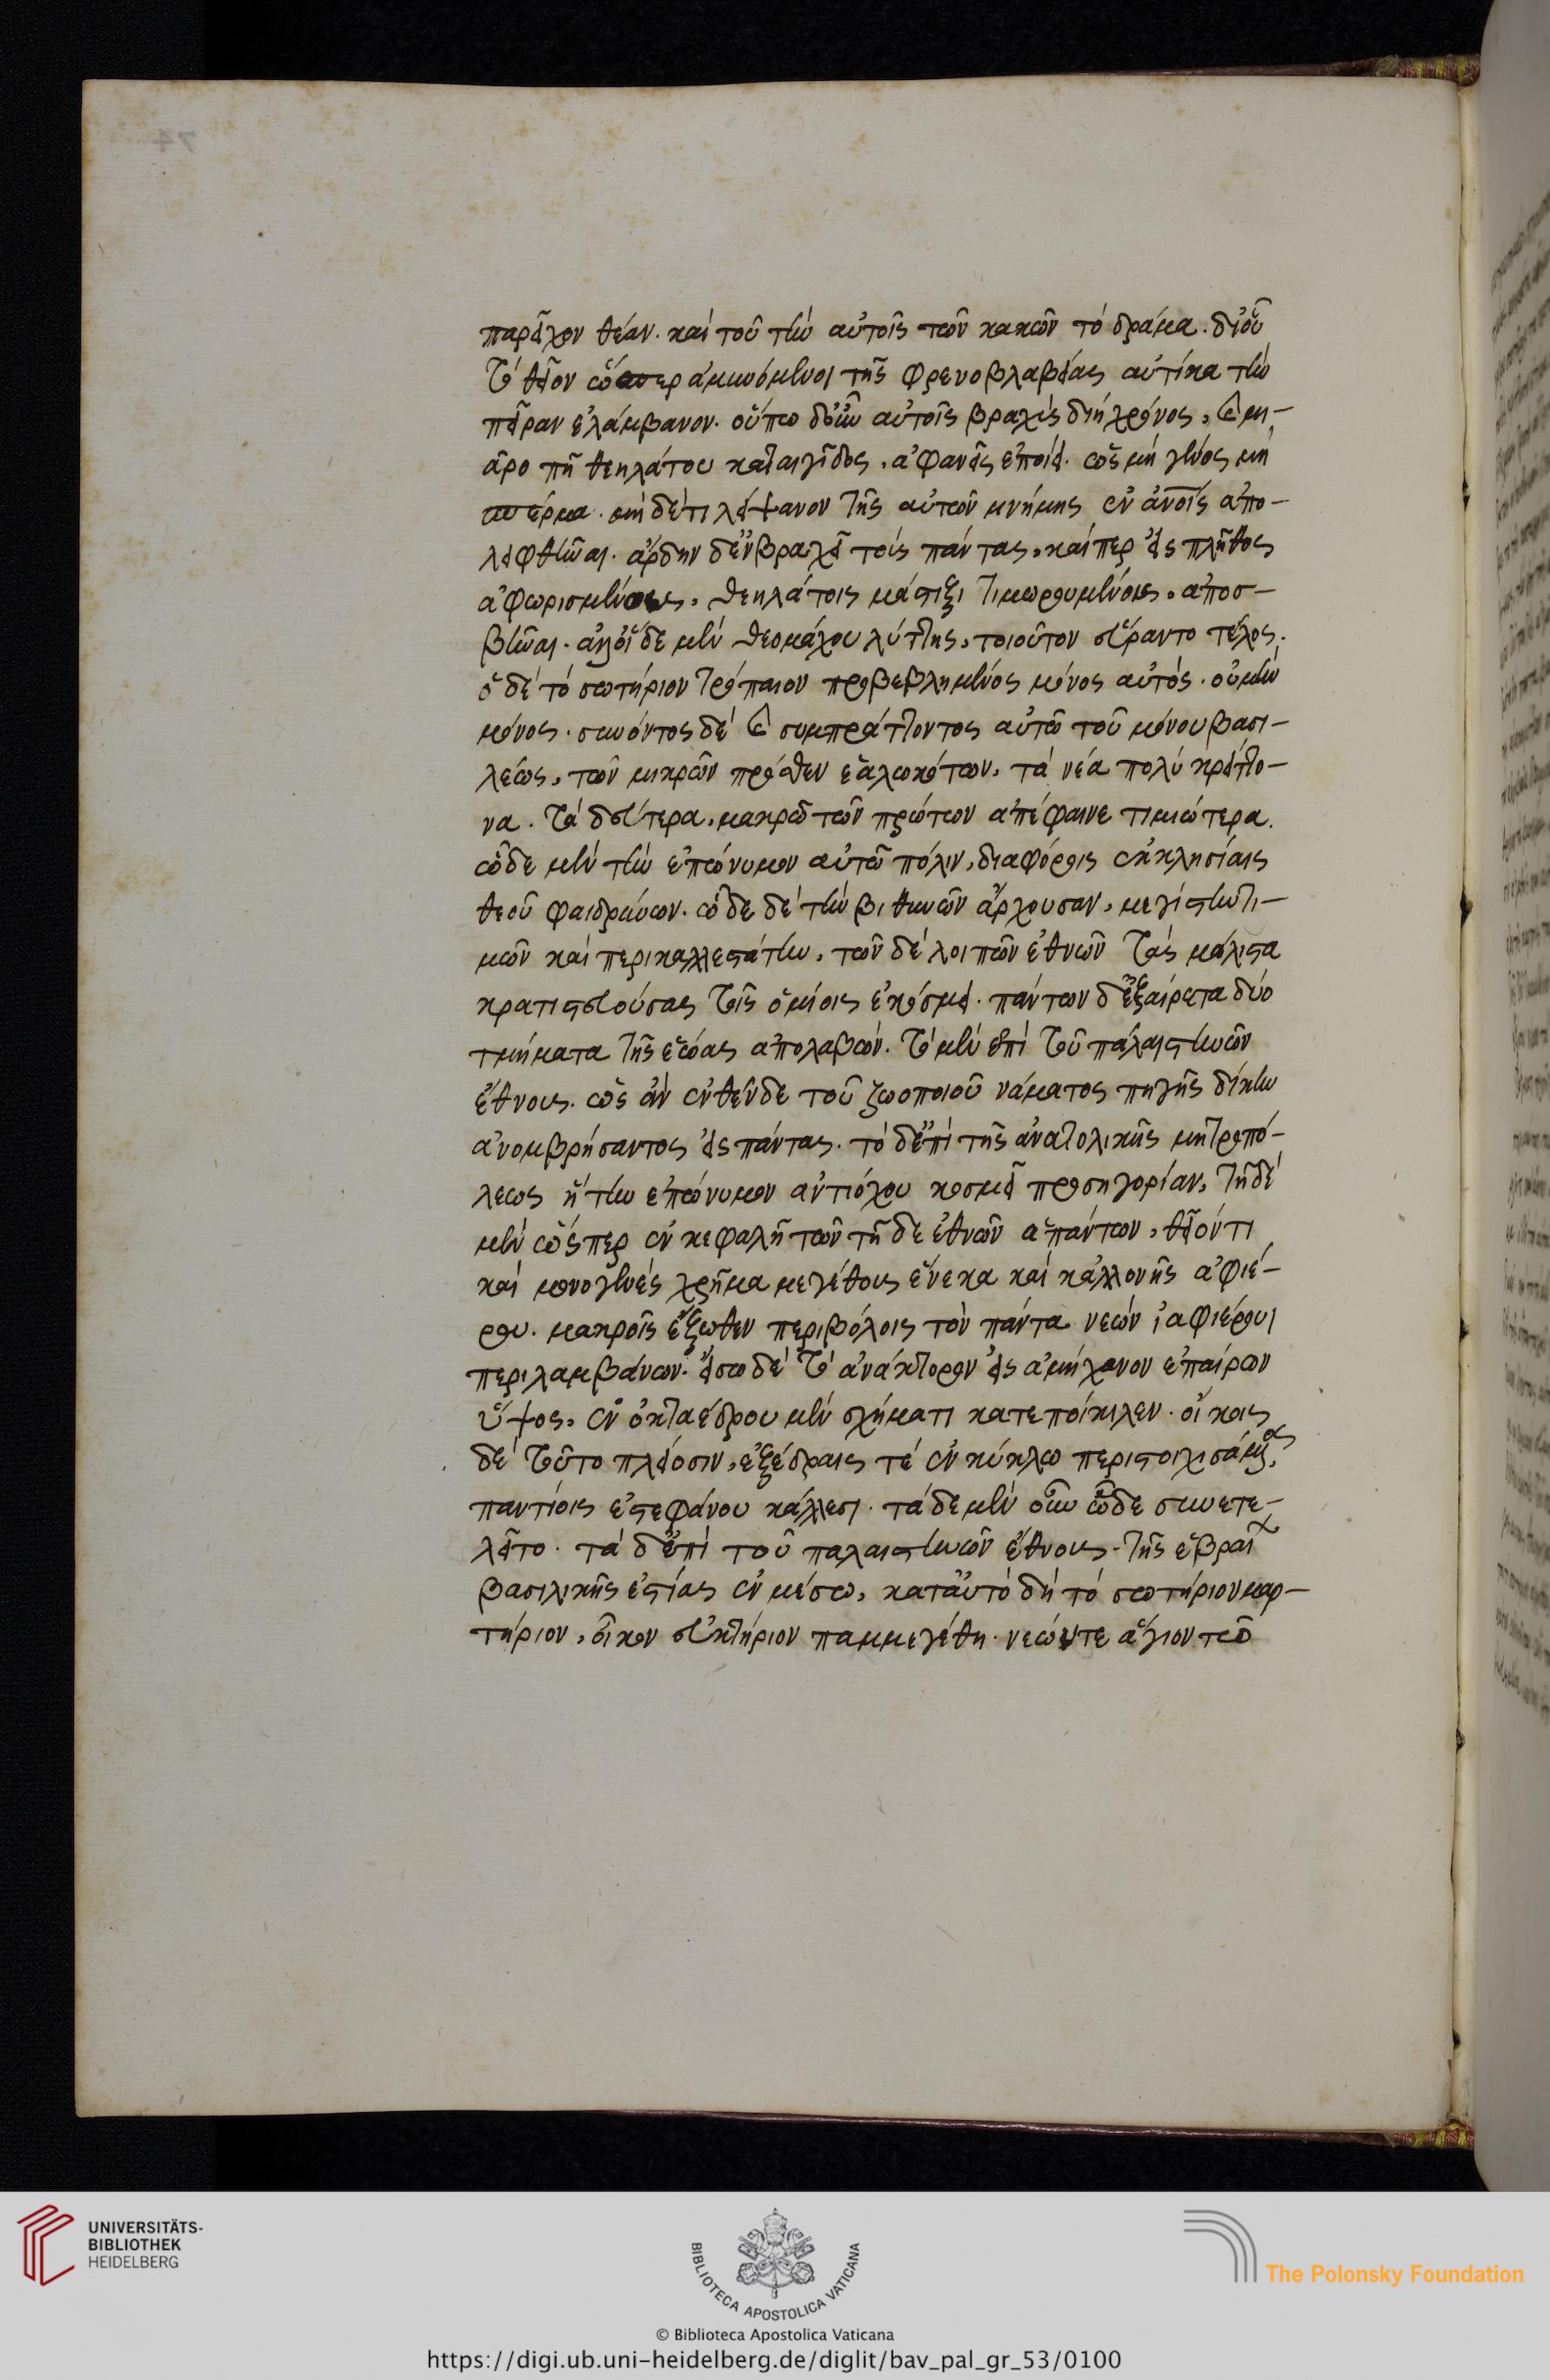 παρεῖχον θέαν. καὶ τοῦτ' ἦν αὐτοῖς τῶν κακῶν τὸ δρᾶμα. δι' οὗ
τὸ θεῖον ὥσπερ ἀμυνόμενοι τῆς φρενοβλαβείας αὐτίκα τὴν
πεῖραν ἐλάμβανον. οὔπω δ' οὖν αὐτοῖς βραχὺς διῄει χρόνος, καὶ μι-
ᾶς ῥοπῇ θεηλάτου καταιγίδος, ἀφανεῖς ἐποίει. ὡς μὴ γένος μὴ
σπέρμα. μὴ δέ τι λείψανον τῆς αὐτῶν μνήμης ἐν ἀνοις ἀπο-
λειφθῆναι. ἄρδην δ' ἐν βραχεῖ τοὺς πάντας, καίπερ εἰς πλῆθος
ἀφωρισμένους, θεηλάτοις μάστιξι τιμωρουμένους, ἀποσ-
βῆναι. ἀλλ' οἵδε μὲν θεομάχου λύττης, τοιοῦτον εὕραντο τέλος.
ὁ δὲ τὸ σωτήριον τρόπαιον προβεβλημένος μόνος αὐτός. οὐ μὴν
μόνος. συνόντος δὲ καὶ συμπράττοντος αὐτῶ τοῦ μόνου βασι-
λέως, τῶν μικρῶν πρόσθεν ἑαλωκότων, τὰ νέα πολὺ κρείττο-
να. τὰ δεύτερα, μακρῶ τῶν πρώτων ἀπέφαινε τιμιώτερα.
ὧδε μὲν τὴν ἐπώνυμον αὐτῶ πόλιν, διαφόροις ἐκκλησίαις
θεοῦ φαιδρύνων. ὧδε δὲ τὴν βιθυνῶν ἄρχουσαν, μεγίστη τι-
μῶν καὶ περικαλλεστάτη, τῶν δὲ λοιπῶν ἐθνῶν τὰς μάλιστα
κρατιστευούσας τοῖς ὁμοίοις ἐκόσμει. πάντων δ' ἐξαίρετα δύο
τμήματα τῆς ἑῴας ἀπολαβών. τὸ μὲν ἐπὶ τοῦ παλαιστινῶν
ἔθνους. ὡς ἂν ἐνθένδε τοῦ ζωοποιοῦ νάματος πηγῆς δίκην
ἀνομβρήσαντος εἰς πάντας. τὸ δ' ἐπὶ τῆς ἀνατολικῆς μητροπό-
λεως ἣ τὴν ἐπώνυμον ἀντιόχου κοσμεῖ προσηγορίαν, τῇδε
μὲν ὥσπερ ἐν κεφαλῇ τῶν τῇδε ἐθνῶν ἁπάντων, θεῖόν τι
καὶ μονογενὲς χρῆμα μεγέθους ἕνεκα καὶ καλλονῆς ἀφιέ-
ρου. μακροῖς ἔξωθεν περιβόλοις τὸν πάντα νεὼν
περιλαμβάνων. εἴσω δὲ τὸ ἀνάκτορον εἰς ἀμήχανον ἐπαίρων
ὕψος, ἐν ὀκταέδρου μὲν σχήματι κατεποίκιλεν. οἴκοις
δὲ τοῦτο πλείοσιν, ἐξέδραις τε ἐν κύκλω περιστοιχισάμενος,
παντίοις ἐστεφάνου κάλλεσι. τάδε μὲν οὖν ὧδε συνετε-
λεῖτο. τὰ δ' ἐπὶ τοῦ παλαιστινῶν ἔθνους. τῆς ἑβραϊ
βασιλικῆς ἑστίας ἐν μέσω, κατ' αὐτὸ δὴ τὸ σωτήριον μαρ-
τήριον, οἶκον εὐκτήριον παμμεγέθη. νεών τε ἅγιον τῶ
UNIVERSITÄTS-
BIBLIOTHEK
HEIDELBERG
BIBLIOTECA APOSTOLICA VATICANA
The Polonsky Foundation
© Biblioteca Apostolica Vaticana
https://digi.ub.uni-heidelberg.de/diglit/bav_pal_gr_53/0100